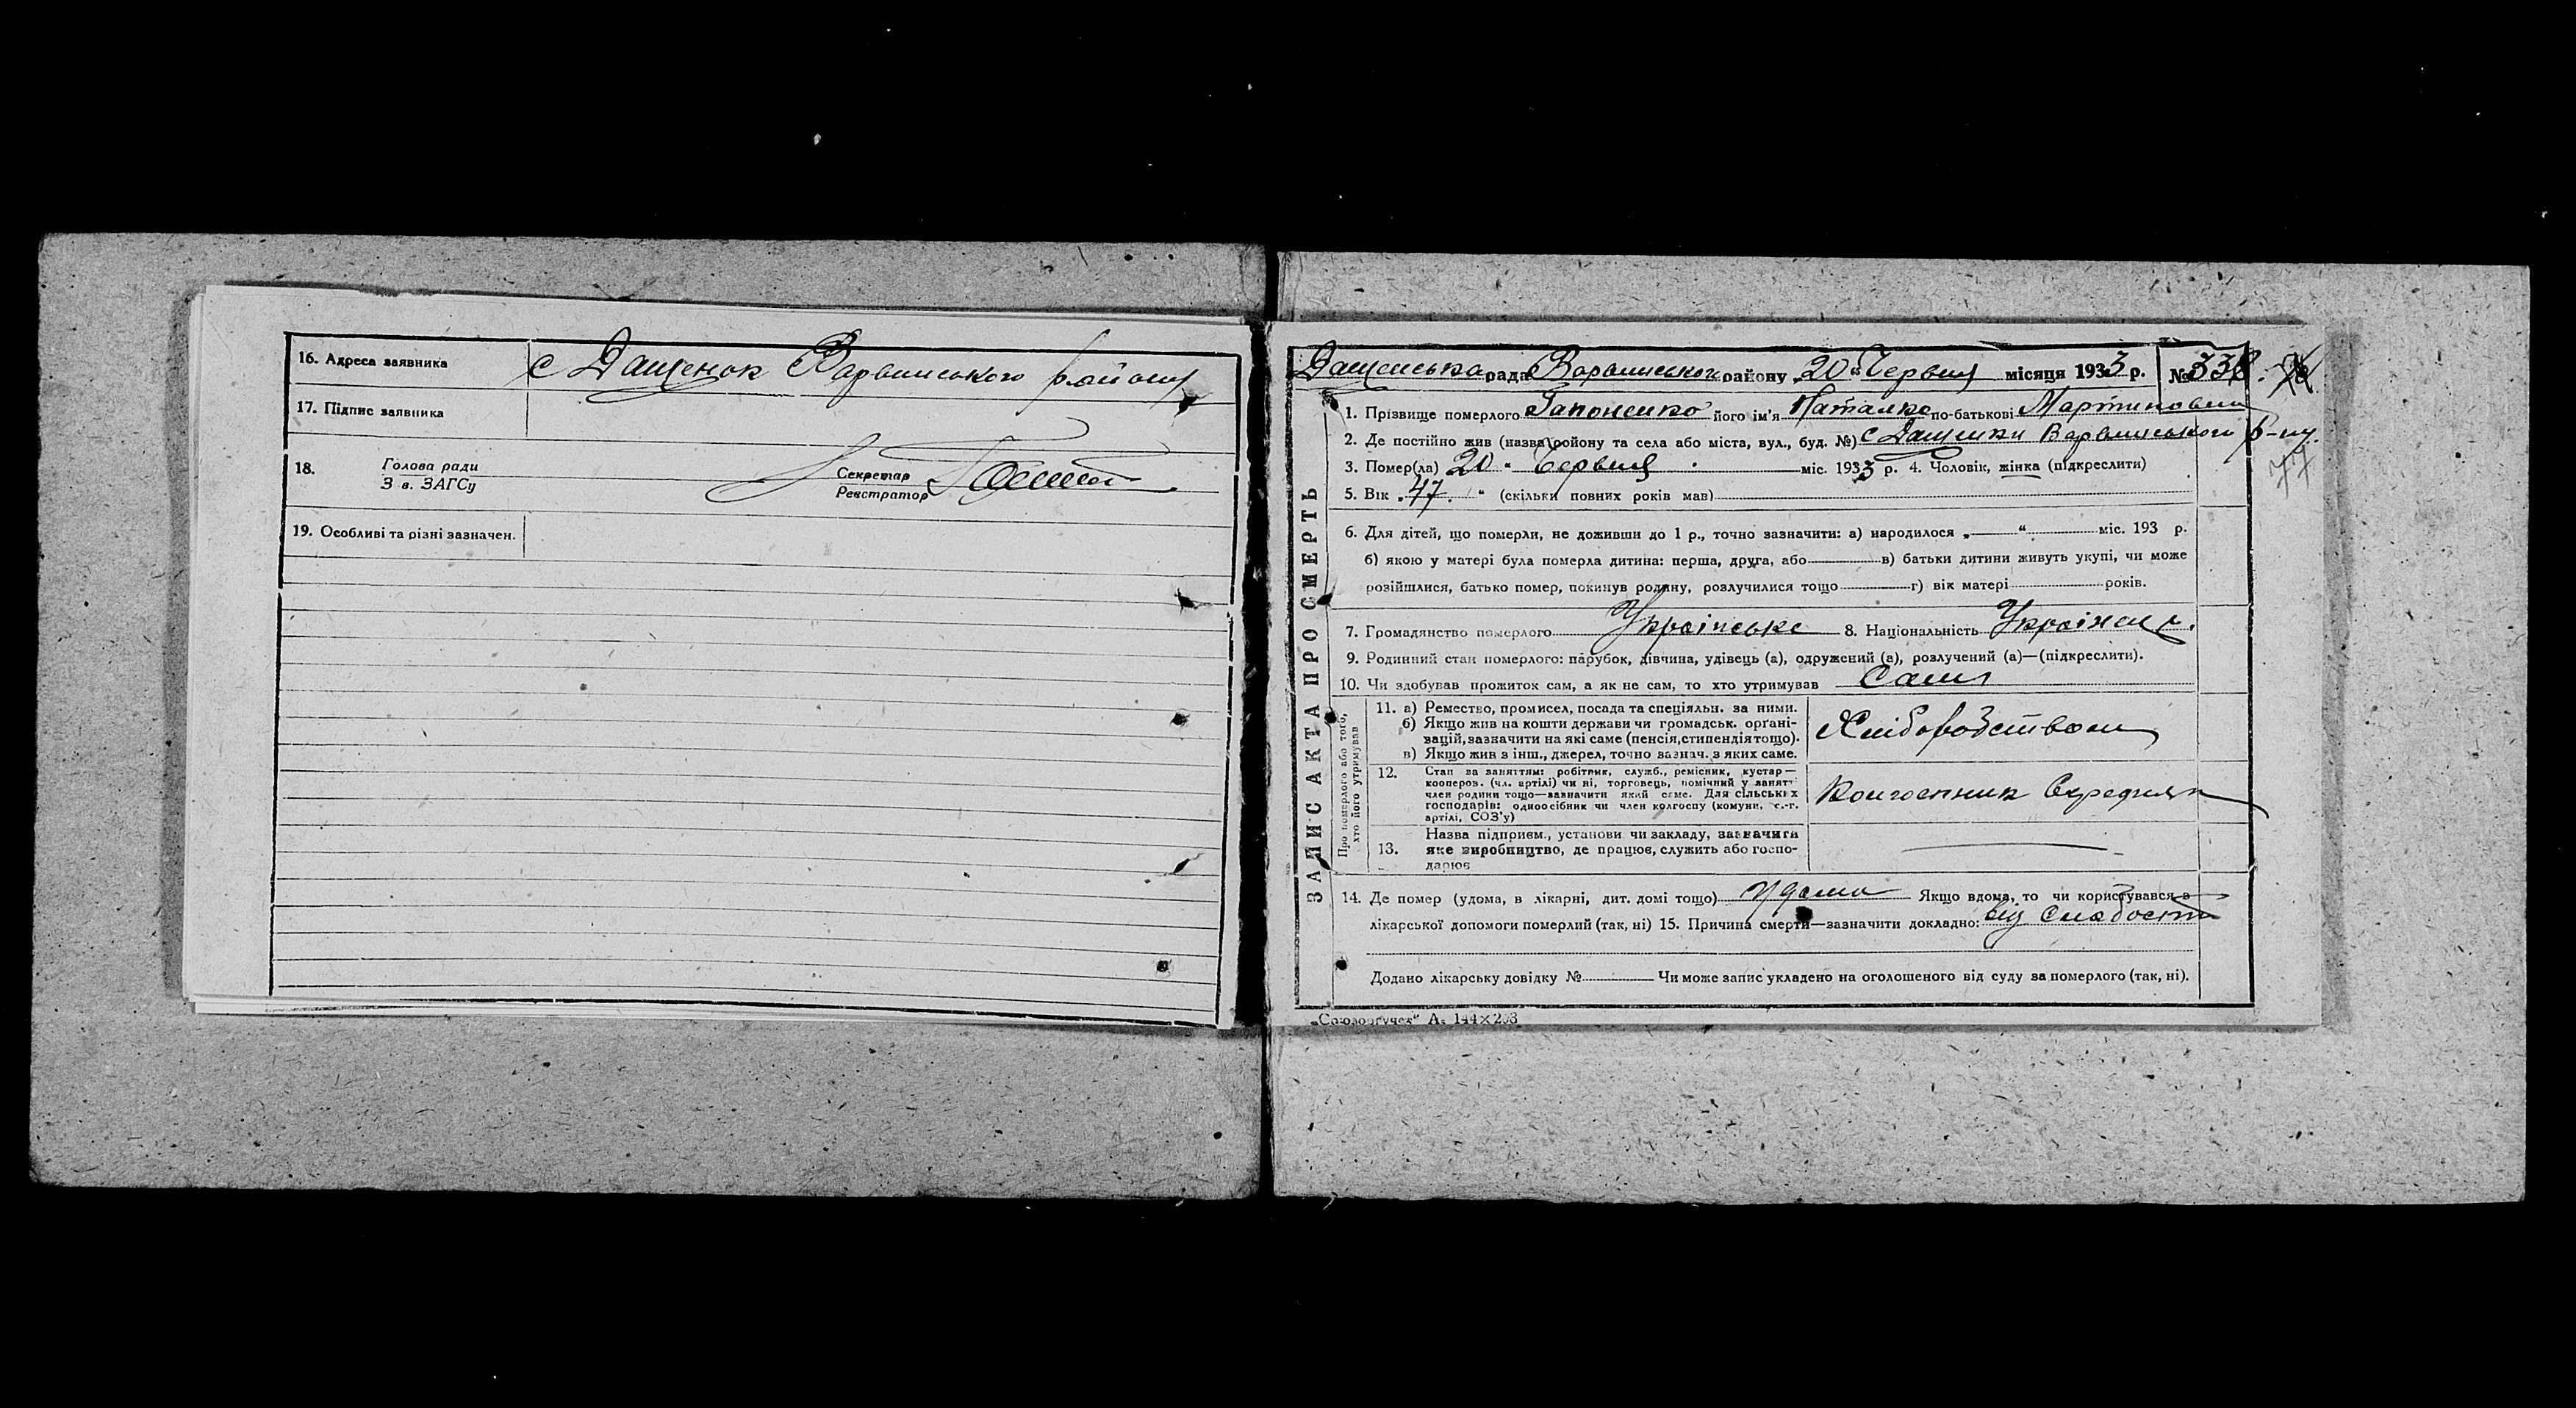 16. Адреса заявника с Дащенок Варвинського району
17. Підпис заявника
18. Голова ради
З в. ЗАГСу
Секретар
Реєстратор
19. Особливі та різні зазначен.
Дащенська рада Варвинського району „20“ Червня місяця 1933 р. № 338.
ЗАПИС АКТА ПРО СМЕРТЬ
1. Прізвище померлого Гапоненко його ім'я Наталка по-батькові Мартиновна
2. Де постійно жив (назва району та села або міста, вул., буд. №) с Дащенки Варвинського р-ну.
77
3. Помер(ла) 20 “ Червня міс. 1933 р. 4. Чоловік, жінка (підкреслити)
5. Вік „47“ (скільки повних років мав)
6. Для дітей, що померли, не доживши до 1 р., точно зазначити: а) народилося „ “ міс. 193 р.
б) якою у матері була померла дитина: перша, друга, або в) батьки дитини живуть укупі, чи може
розійшлися, батько помер, покинув родину, розлучилися тощо г) вік матері років.
7. Громадянство померлого Українське 8. Національність Українка.
9. Родинний стан померлого: парубок, дівчина, удівець (а), одружений (а), розлучений (а)—(підкреслити).
10. Чи здобував прожиток сам, а як не сам, то хто утримував Сама
Про померлого або того, хто його утримував
11. а) Ремество, промисел, посада та спеціяльн. за ними.
б) Якщо жив на кошти держави чи громадськ. органі-
зацій, зазначити на які саме (пенсія, стипендія тощо).
в) Якщо жив з інш., джерел, точно зазнач. з яких саме.
Хліборобством
12. Стан за заняттям: робітник, служб., ремісник, кустар—
кооперов. (чл. артілі) чи ні, торговець, помічний у занят.
член родини тощо—зазначити який саме. Для сільських
господарів: одноосібник чи член колгоспу (комуни, с.-г.
артілі, СОЗ'у)
Колгоспник Середняк
13. Назва підприєм., установи чи закладу, зазначити
яке виробництво, де працює, служить або госпо-
дарює
14. Де помер (удома, в лікарні, дит. домі тощо) Удома Якщо вдома, то чи користувався в
лікарської допомоги померлий (так, ні) 15. Причина смерти—зазначити докладно: від слабости
Додано лікарську довідку № Чи може запис укладено на оголошеного від суду за померлого (так, ні).
„Союзоргучет“ А₅ 144×203